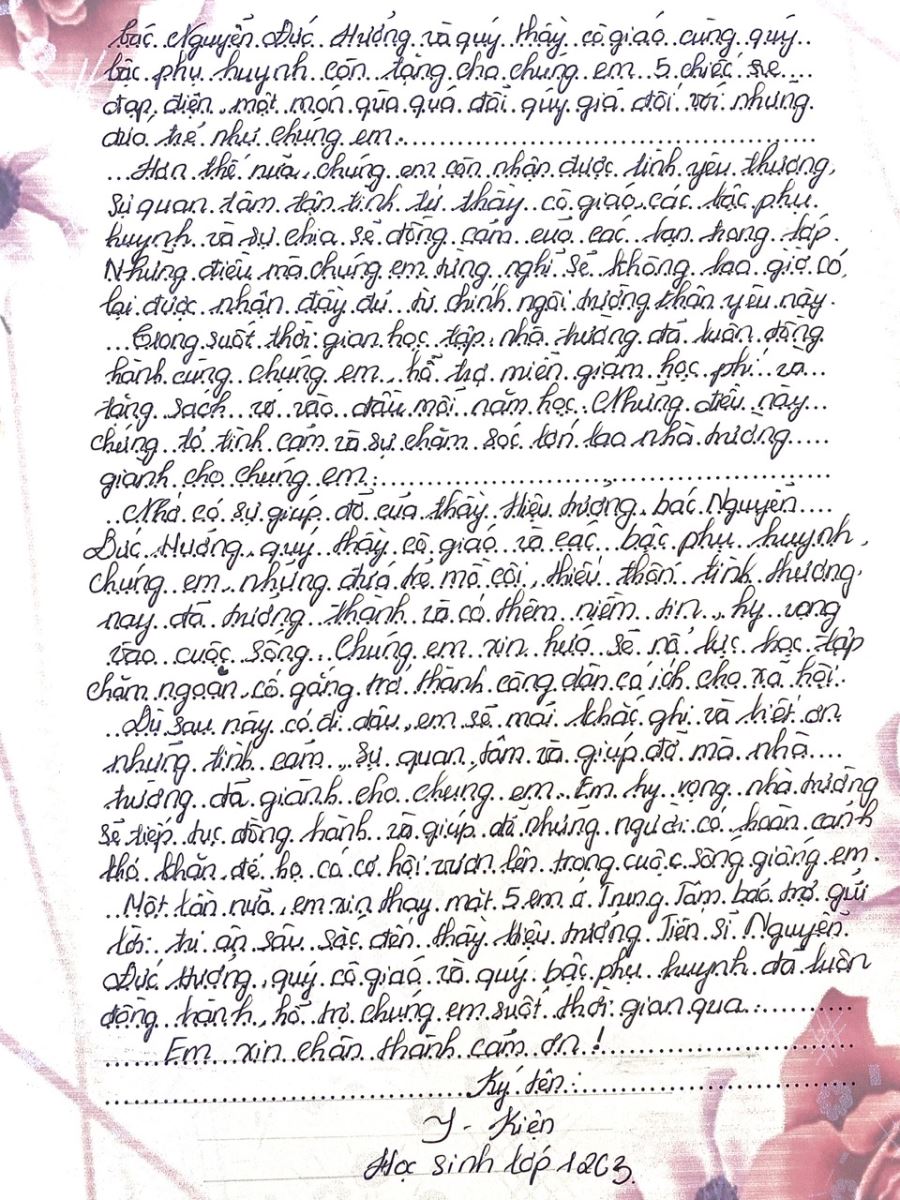 bác Nguyễn Đức Hưởng và quý thầy cô giáo cùng quý
bậc phụ huynh còn tặng cho chúng em 5 chiếc xe
đạp điện, một món qùa quá đỗi qúy giá đối với những
đứa trẻ như chúng em.
Hơn thế nữa, chúng em còn nhận được tình yêu thương,
sự quan tâm tận tình từ thầy cô giáo, các bậc phụ
huynh và sự chia sẻ đồng cảm của các bạn trong lớp.
Những điều mà chúng em từng nghĩ sẽ không bao giờ có,
lại được nhận đầy đủ từ chính ngôi trường thân yêu này.
Trong suốt thời gian học tập, nhà trường đã luôn đồng
hành cùng chúng em, hỗ trợ miễn giảm học phí và
tặng sách vở vào đầu mỗi năm học. Những điều này
chứng tỏ tình cảm và sự chăm sóc lớn lao nhà trường
giành cho chúng em.
Nhờ có sự giúp đỡ của thầy Hiệu trưởng, bác Nguyễn
Đức Hưởng, quý thầy cô giáo và các bậc phụ huynh,
chúng em, những đứa trẻ mồ côi, thiếu thốn tình thương
nay đã trưởng thành và có thêm niềm tin, hy vọng
vào cuộc sống. Chúng em xin hứa sẽ nỗ lực học tập
chăm ngoan, cố gắng trở thành công dân có ích cho xã hội.
Dù sau này có đi đâu, em sẽ mãi khắc ghi và biết ơn
những tình cảm, sự quan tâm và giúp đỡ mà nhà
trường đã giành cho chúng em. Em hy vọng nhà trường
sẽ tiếp tục đồng hành và giúp đỡ những người có hoàn cảnh
khó khăn để họ có cơ hội vươn lên trong cuộc sống giống em.
Một lần nữa, em xin thay mặt 5 em ở Trung Tâm bảo trợ gửi
lời tri ân sâu sắc đến thầy hiệu trưởng Tiến sĩ Nguyễn
Đức Hưởng, quý cô giáo và quý bậc phụ huynh đã luôn
đồng hành, hỗ trợ chúng em suốt thời gian qua.
Em xin chân thành cảm ơn!
Ký tên:
Y - Kiện
Học sinh lớp 12C3.